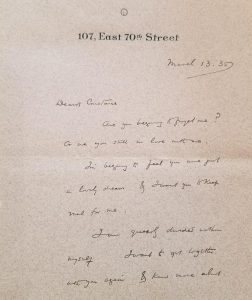 107, East 70th Street
March 13. 35
Dearest Constance
Are you beginning to forget me?
Or are you still in love with me.
I'm beginning to feel you are just
a lovely dream & I want you to keep
real for me.
I am queerly divided within
myself. I want to get together
with you again & know more about